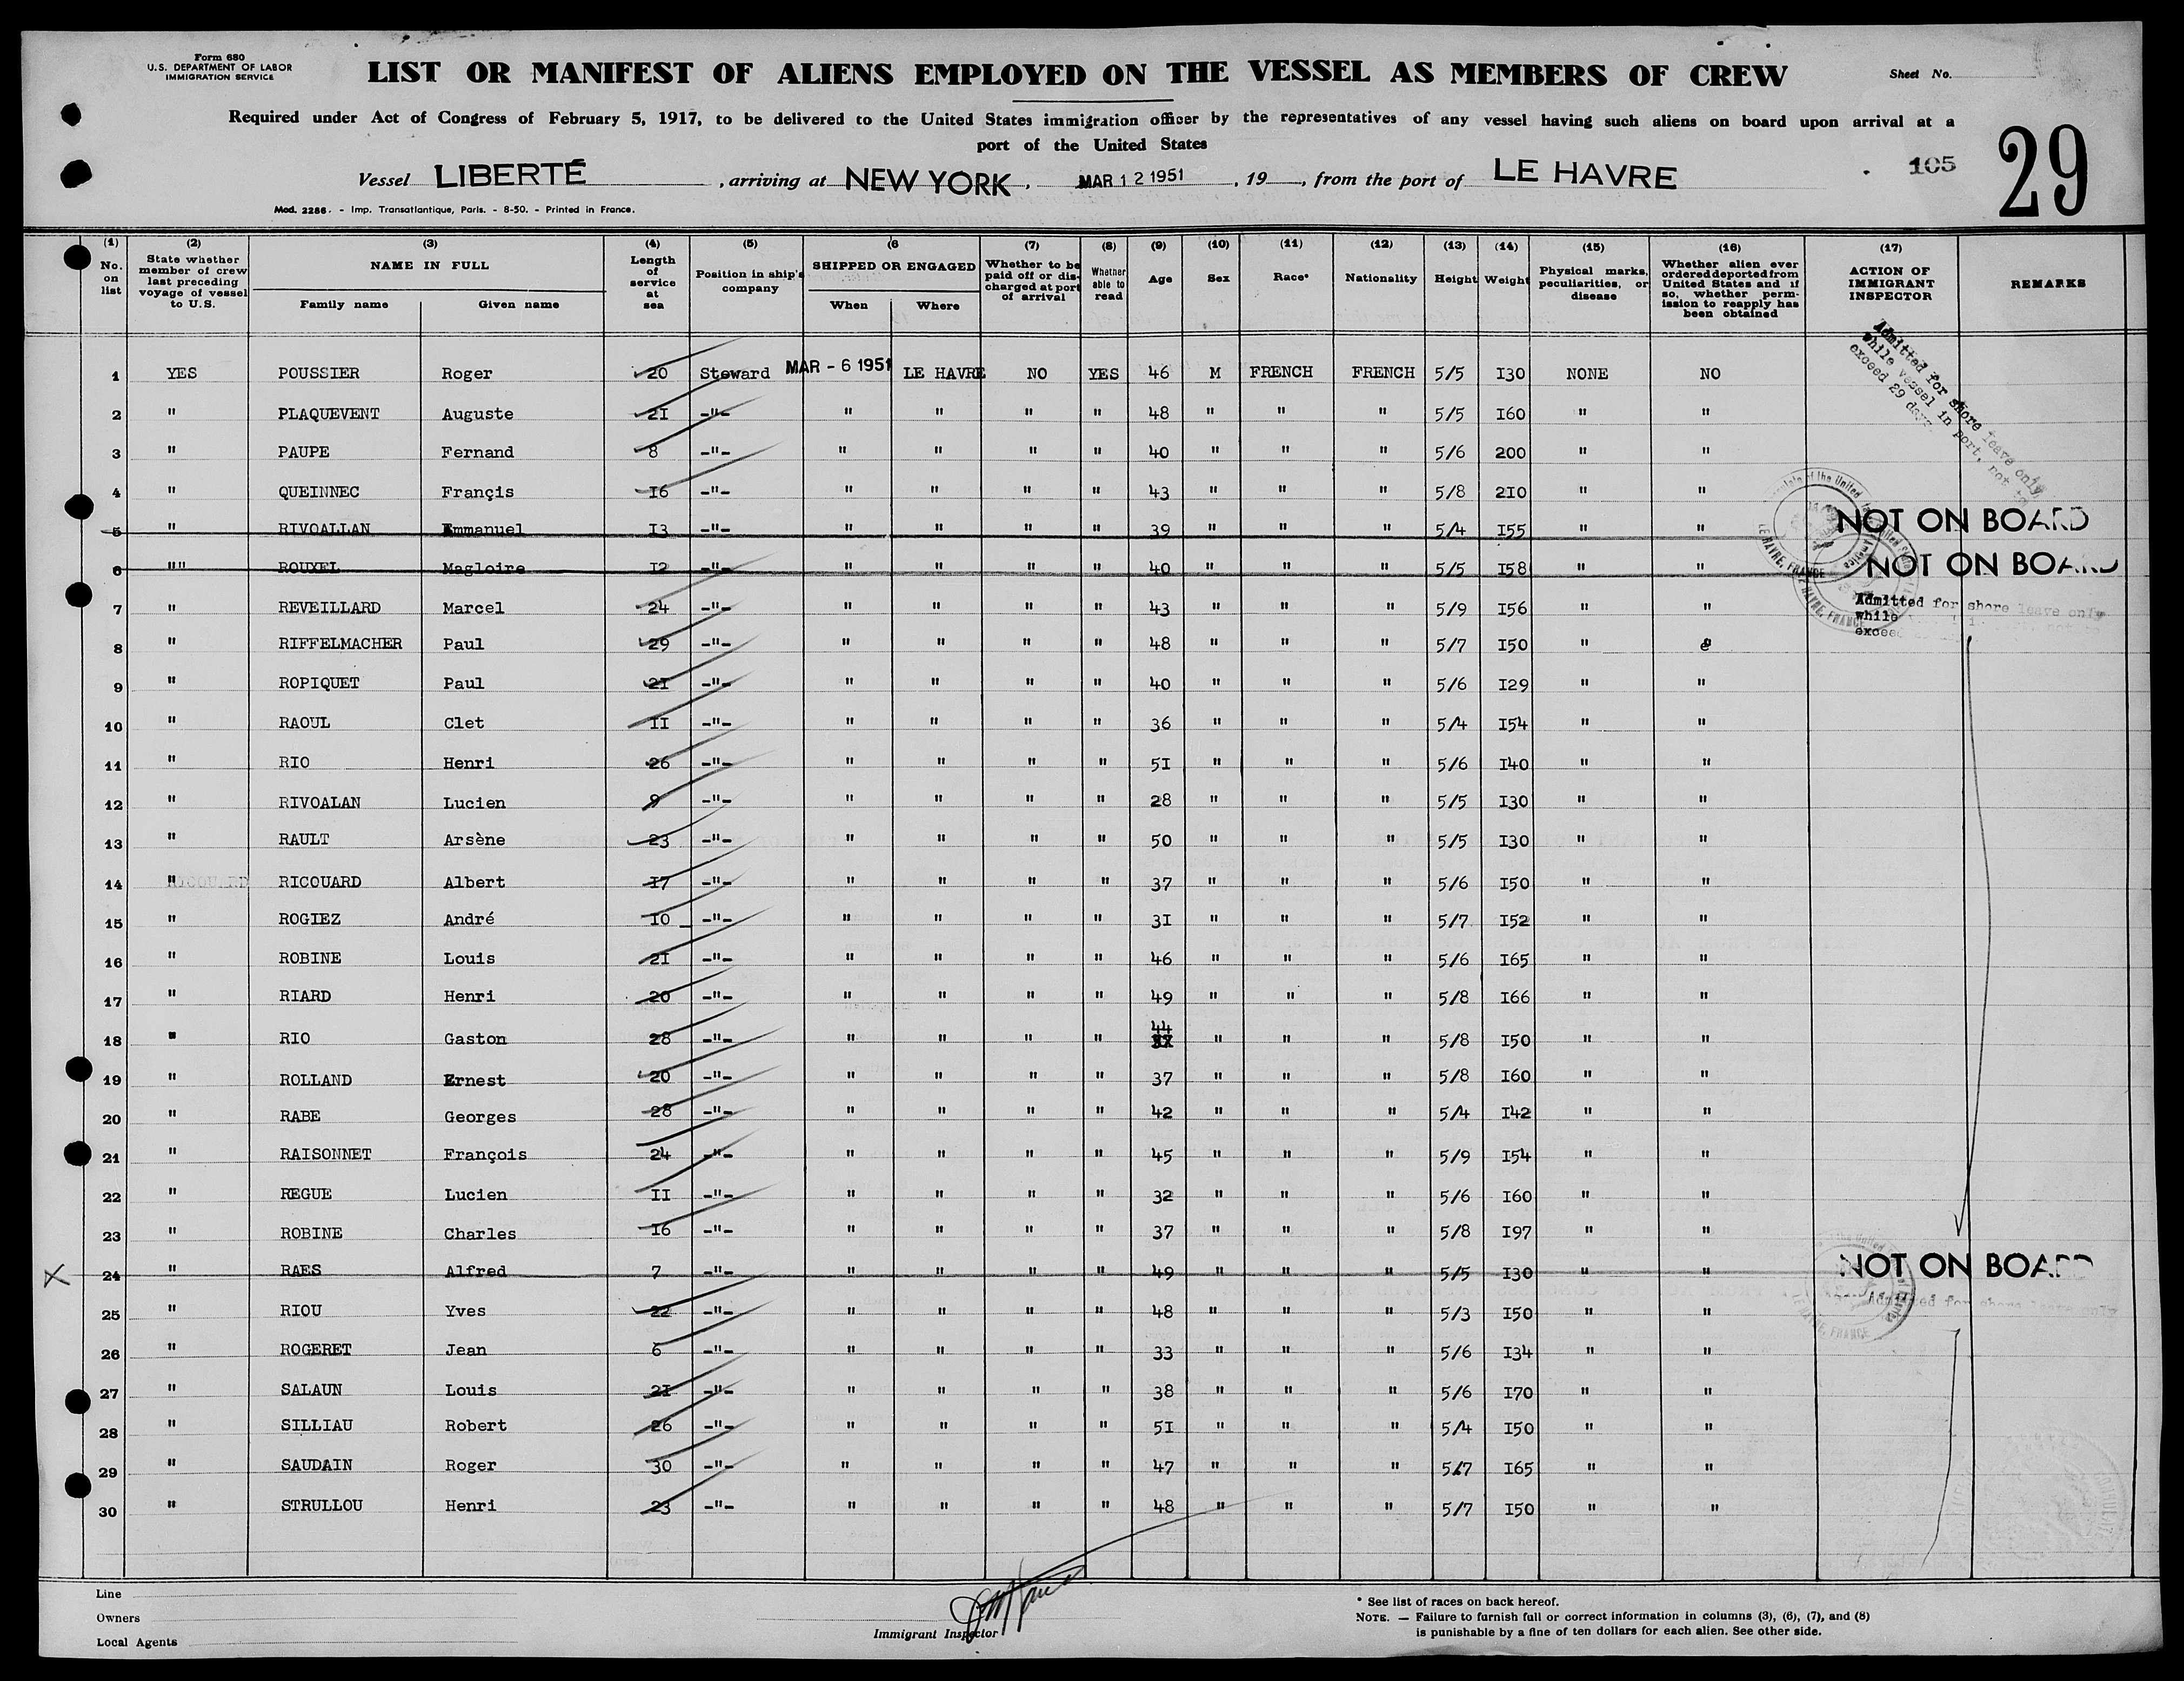 Form 680
U.S. DEPARTMENT OF LABOR
IMMIGRATION SERVICE
LIST OR MANIFEST OF ALIENS EMPLOYED ON THE VESSEL AS MEMBERS OF CREW
Sheet No.
Required under Act of Congress of February 5, 1917, to be delivered to the United States immigration officer by the representatives of any vessel having such aliens on board upon arrival at a
port of the United States
Vessel LIBERTÉ, arriving at NEW YORK, MAR 12 1951, 19, from the port of LE HAVRE
105
29
Mod. 2286. - Imp. Transatlantique, Paris. - 8-50. - Printed in France.
(1) No. on list
(2) State whether member of crew last preceding voyage of vessel to U.S.
(3) NAME IN FULL Family name Given name
(4) Length of service at sea
(5) Position in ship's company
(6 SHIPPED OR ENGAGED When Where
(7) Whether to be paid off or discharged at port of arrival
(8) Whether able to read
(9) Age
(10) Sex
(11) Race*
(12) Nationality
(13) Height
(14) Weight
(15) Physical marks, peculiarities, or disease
(16) Whether alien ever ordered deported from United States and if so, whether permission to reapply has been obtained
(17) ACTION OF IMMIGRANT INSPECTOR
REMARKS
Admitted for shore leave only
while vessel in port, not to
exceed 29 days.
1 YES POUSSIER Roger 20 Steward MAR - 6 1951 LE HAVRE NO YES 46 M FRENCH FRENCH 5/5 I30 NONE NO
2 " PLAQUEVENT Auguste 2I -"- " " " " 48 " " " 5/5 I60 " "
3 " PAUPE Fernand 8 -"- " " " " 40 " " " 5/6 200 " "
4 " QUEINNEC Françis I6 -"- " " " " 43 " " " 5/8 2I0 " "
5 " RIVOALLAN Emmanuel I3 -"- " " " " 39 " " " 5/4 I55 " " NOT ON BOARD
6 "" ROUXEL Magloire I2 -"- " " " " 40 " " " 5/5 I58 " " NOT ON BOARD
7 " REVEILLARD Marcel 24 -"- " " " " 43 " " " 5/9 I56 " " Admitted for shore leave only
while
exceed
8 " RIFFELMACHER Paul 29 -"- " " " " 48 " " " 5/7 I50 "
9 " ROPIQUET Paul 2I -"- " " " " 40 " " " 5/6 I29 " "
10 " RAOUL Clet II -"- " " " " 36 " " " 5/4 I54 " "
11 " RIO Henri 26 -"- " " " " 5I " " " 5/6 I40 " "
12 " RIVOALAN Lucien 9 -"- " " " " 28 " " " 5/5 I30 " "
13 " RAULT Arsène 23 -"- " " " " 50 " " " 5/5 I30 " "
14 " RICOUARD Albert I7 -"- " " " " 37 " " " 5/6 I50 " "
15 " ROGIEZ André I0 -"- " " " " 3I " " " 5/7 I52 " "
16 " ROBINE Louis 2I -"- " " " " 46 " " " 5/6 I65 " "
17 " RIARD Henri 20 -"- " " " " 49 " " " 5/8 I66 " "
18 " RIO Gaston 28 -"- " " " " 44 " " " 5/8 I50 " "
19 " ROLLAND Ernest 20 -"- " " " " 37 " " " 5/8 I60 " "
20 " RABE Georges 28 -"- " " " " 42 " " " 5/4 I42 " "
21 " RAISONNET François 24 -"- " " " " 45 " " " 5/9 I54 " "
22 " REGUE Lucien II -"- " " " " 32 " " " 5/6 I60 " "
23 " ROBINE Charles I6 -"- " " " " 37 " " " 5/8 I97 " "
X 24 " RAES Alfred 7 -"- " " " " 49 " " " 5/5 I30 " " NOT ON BOARD
25 " RIOU Yves 22 -"- " " " " 48 " " " 5/3 I50 " " Admitted for shore leave only
26 " ROGERET Jean 6 -"- " " " " 33 " " " 5/6 I34 " "
27 " SALAUN Louis 2I -"- " " " " 38 " " " 5/6 I70 " "
28 " SILLIAU Robert 26 -"- " " " " 5I " " " 5/4 I50 " "
29 " SAUDAIN Roger 30 -"- " " " " 47 " " " 5/7 I65 " "
30 " STRULLOU Henri 23 -"- " " " " 48 " " " 5/7 I50 " "
LE HAVRE, FRANCE
Line
Owners
Local Agents
Immigrant Inspector
* See list of races on back hereof.
NOTE. — Failure to furnish full or correct information in columns (3), (6), (7), and (8)
is punishable by a fine of ten dollars for each alien. See other side.